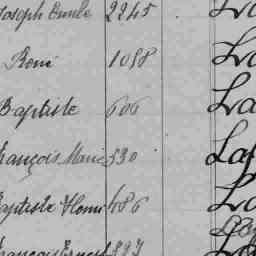 Joseph Emile 2245 La
René 1098 La
Baptiste 606 La
François Marie 530 Laf
Baptiste Henri 486 La
François Ernest 897